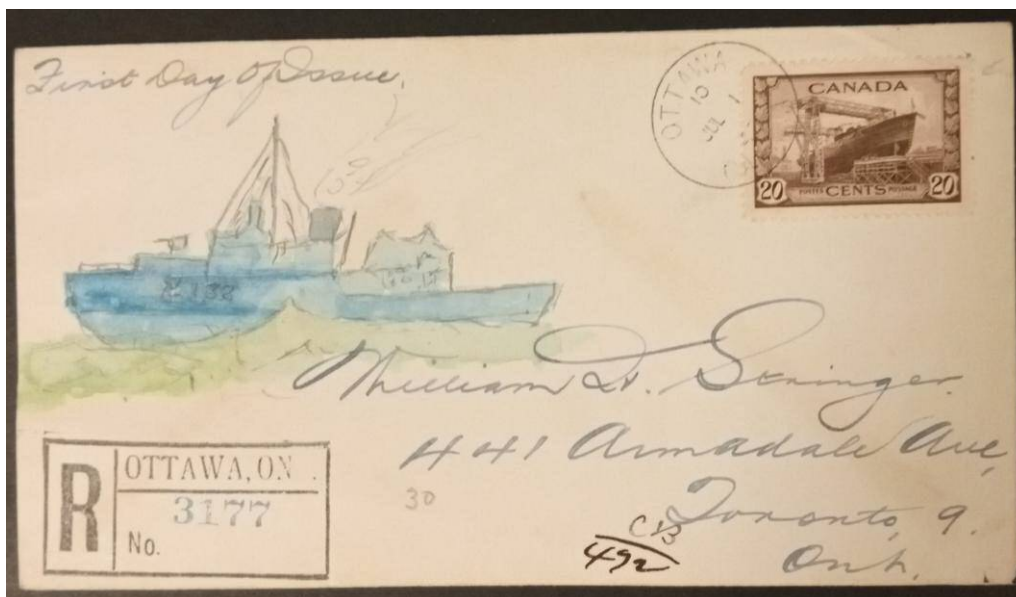 First Day Of Issue.
OTTAWA
10
JUL 1
CANADA
20 POSTES CENTS POSTAGE 20
K 132
William D. Stringer
441 Armadale Ave,
Toronto, 9.
Ont.
R
OTTAWA, ON .
3177
No.
30
492